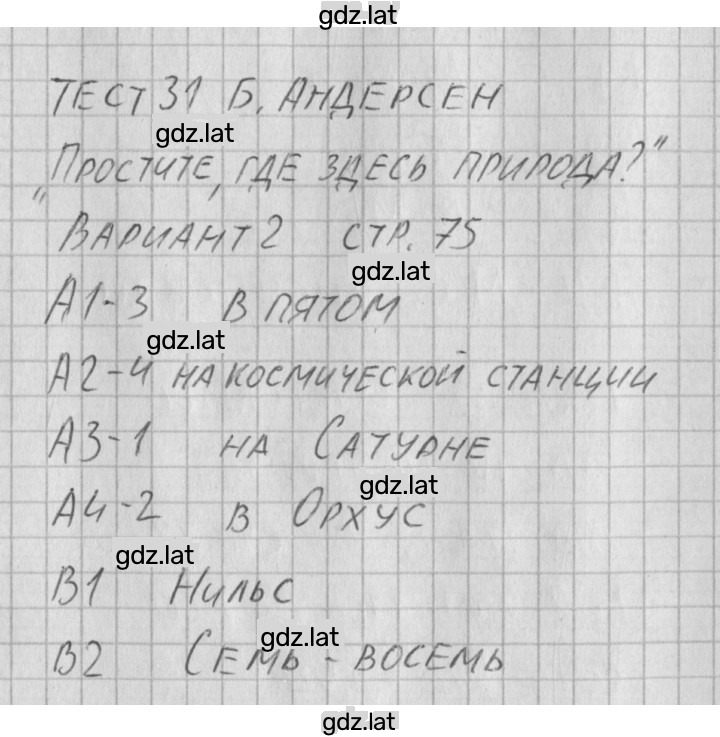 gdz.lat
ТЕСТ 31 Б. АНДЕРСЕН
gdz.lat
„ПРОСТИТЕ, ГДЕ ЗДЕСЬ ПРИРОДА?"
ВАРИАНТ 2 СТР. 75
gdz.lat
А1-3 В ПЯТОМ
gdz.lat
А2-4 НА КОСМИЧЕСКОЙ СТАНЦИИ
А3-1 НА САТУРНЕ
gdz.lat
А4-2 В ОРХУС
gdz.lat
В1 НИЛЬС
gdz.lat
В2 СЕМЬ - ВОСЕМЬ
gdz.lat